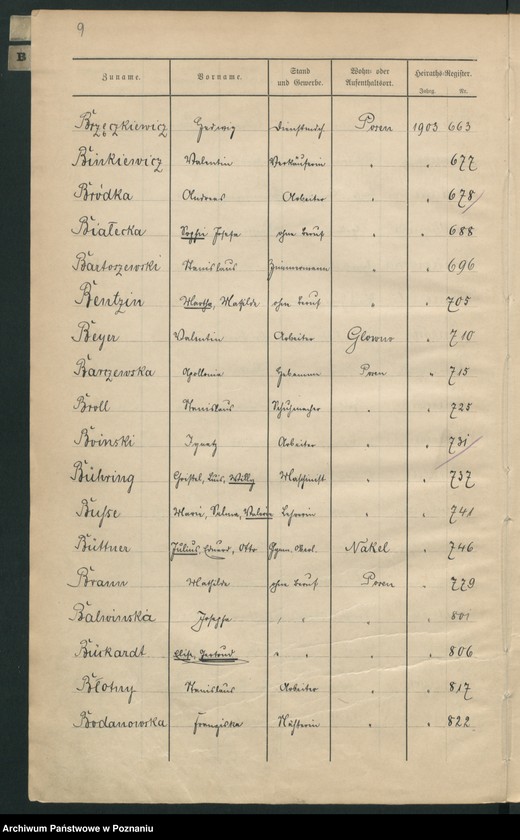 9
B
Zuname. Vorname. Stand und Gewerbe. Wohn- oder Aufenthaltsort. Heiraths-Register.
Jahrg. Nr.
Brzęczkiewicz Hedwig Posen 1903 663
Binkiewicz Valentin Verkäuferin " " 677
Bródka Andreas Arbeiter " " 678
Białecka Sophie Josefa ohne Beruf " " 688
Bartoszewski Stanislaus Zimmermann " " 696
Bentzin Martha, Mathilde ohne Beruf " " 705
Beyer Valentin Arbeiter Glowno " 710
Barszewska Apollonia Hebamme Posen " 715
Broll Stanislaus Schuhmacher " " 725
Boinski Ignatz Arbeiter " " 731
Bühring Christel, Luis, Willy Maschinist " " 737
Busse Marie, Selma, Lehrerin " " 741
Büttner Julius, Eduard, Otto Nakel " 746
Braun Mathilde ohne Beruf Posen " 779
Balwinska Josepha " " " " 801
Buckardt Elise, Gertrud " " " " 806
Błotny Stanislaus Arbeiter " " 817
Bodanowska Franziska Näherin " " 822
Archiwum Państwowe w Poznaniu
szukajwarchiwach.gov.pl